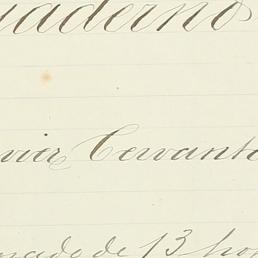 uaderno
vier Cervante
mado de 13 ho